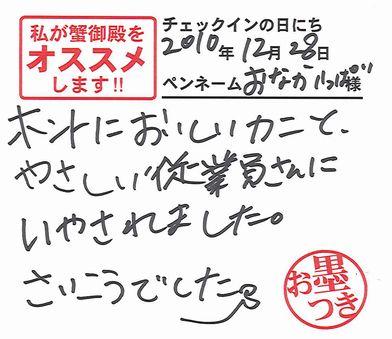 私が蟹御殿を
オススメ
します!!
チェックインの日にち
2010年12月28日
ペンネーム おなかいっぱい様
ホントにおいしいカニと、
やさしい従業員さんに
いやされました。
さいこうでした
お墨つき